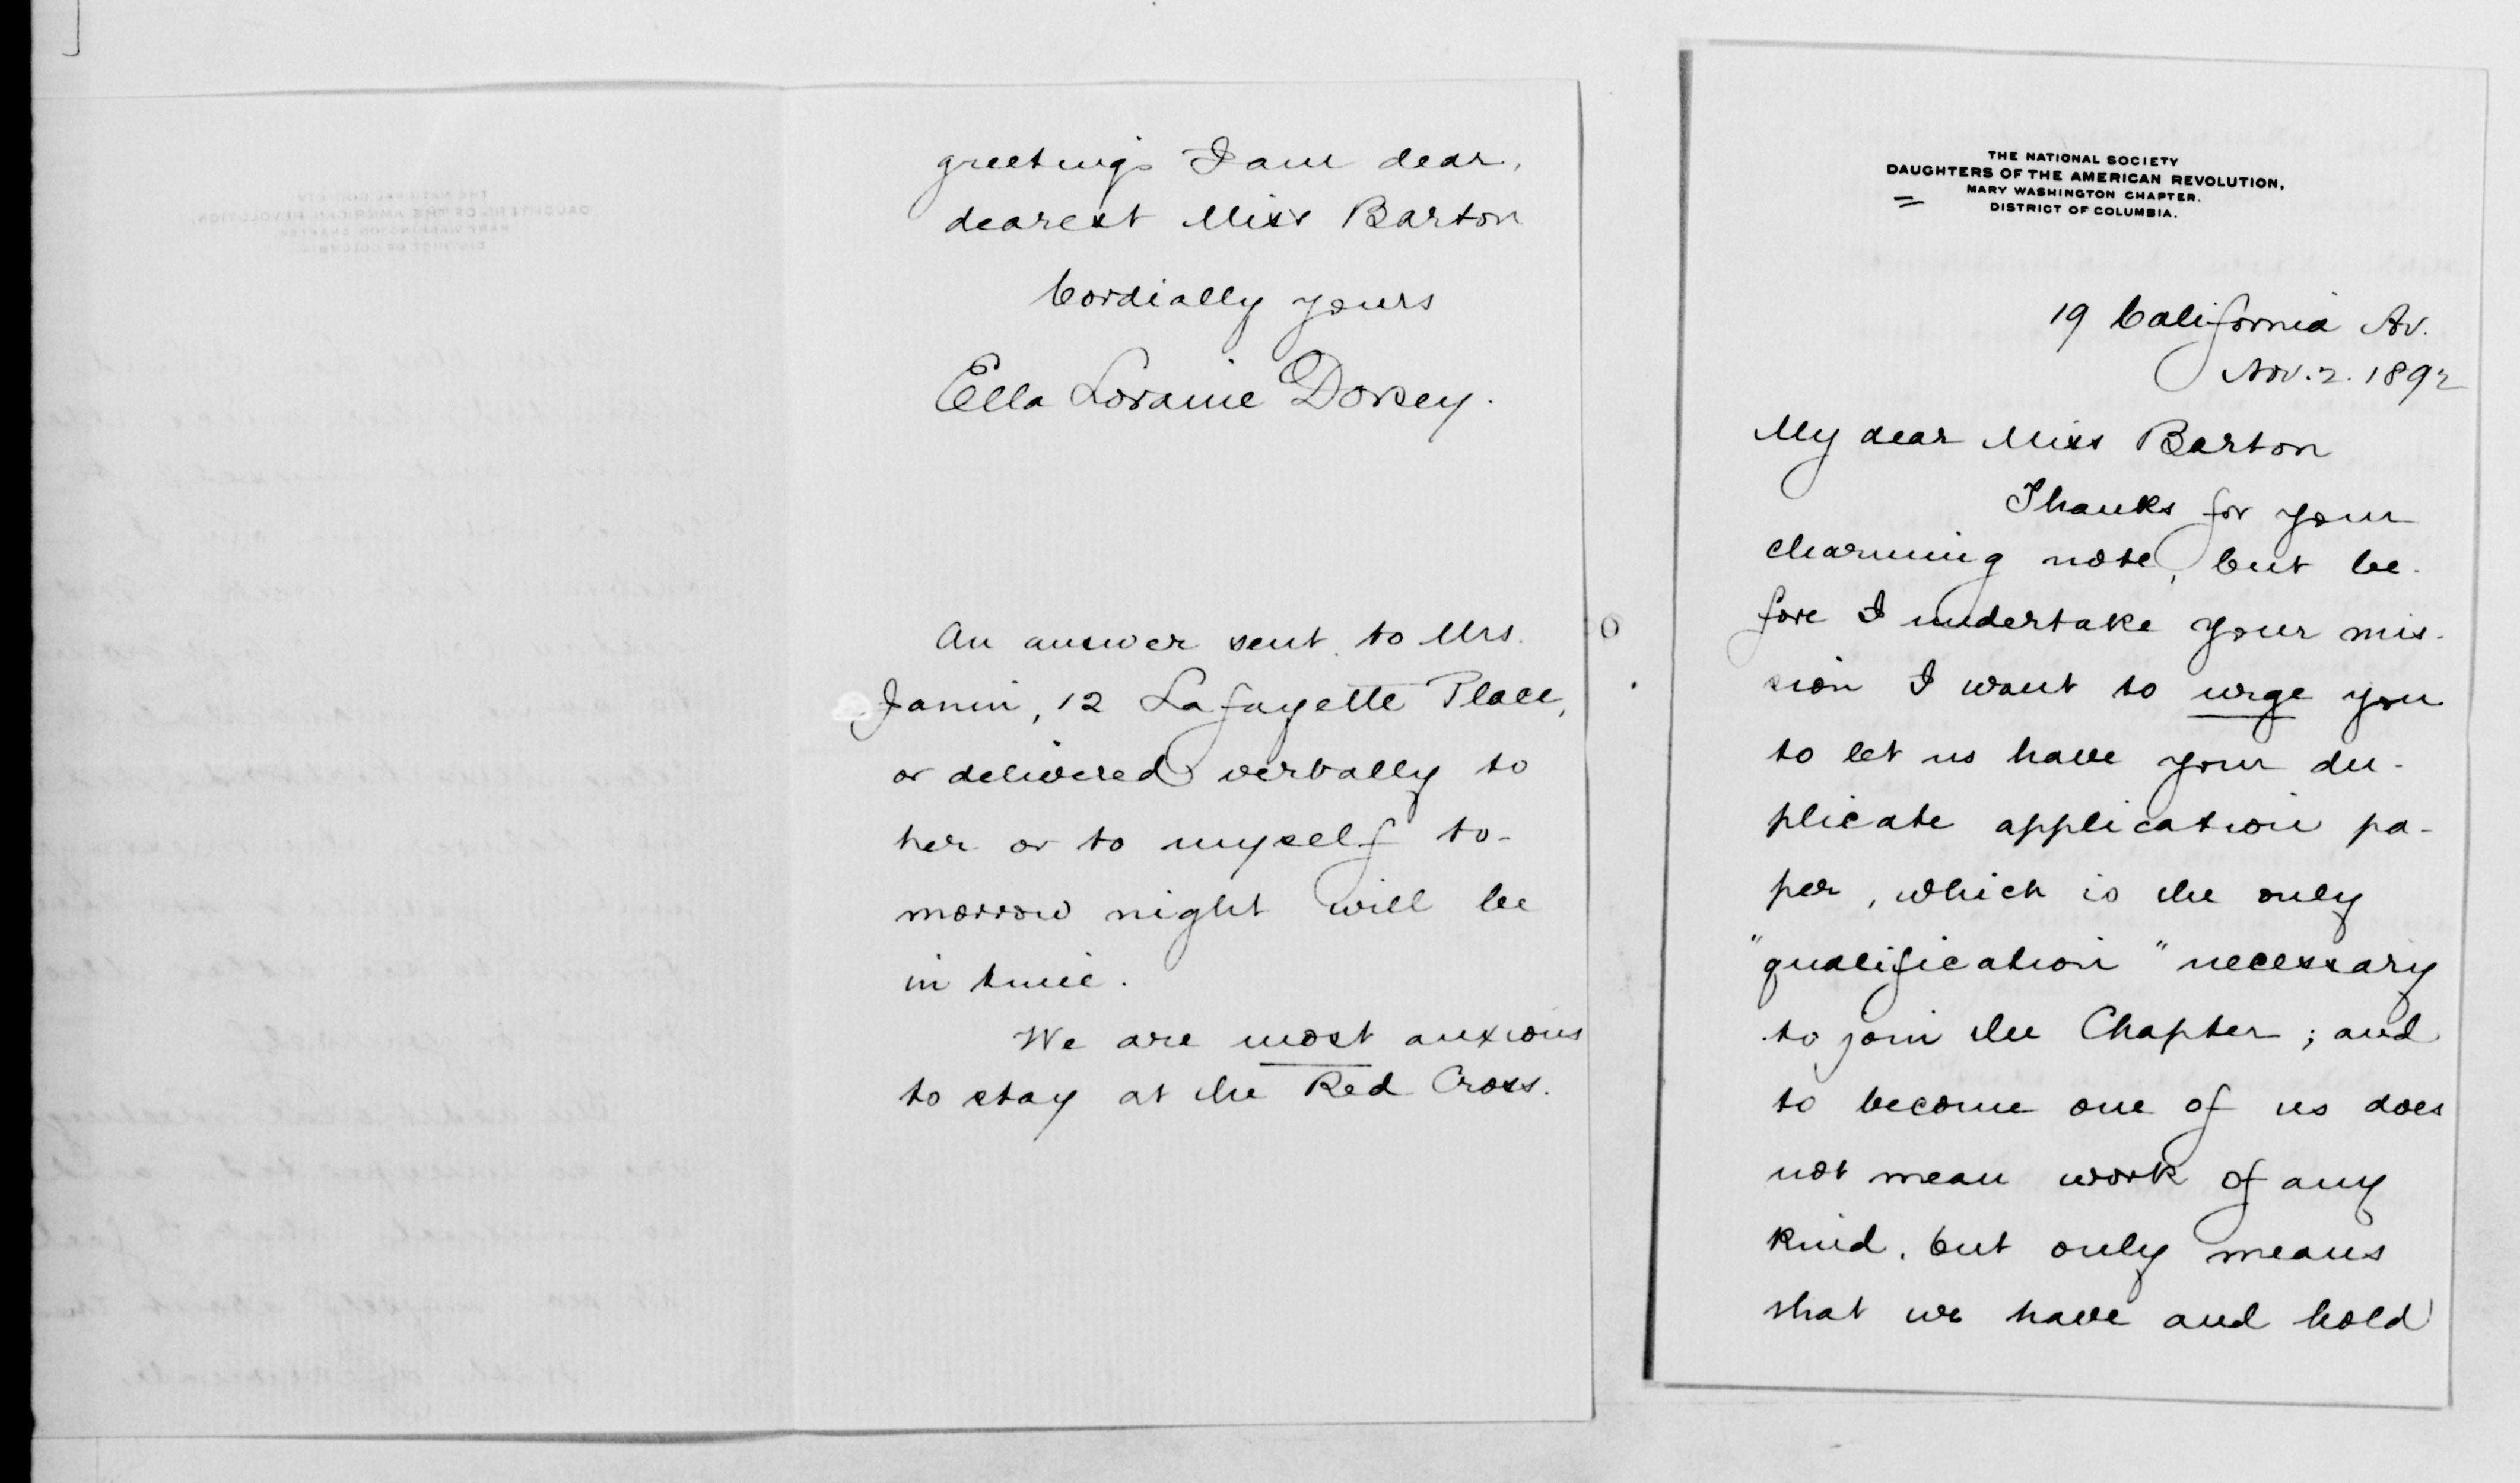 greetings I am dear,
dearest Miss Barton
Cordially yours
Ella Loraine Dorsey.
An answer sent to Mrs.
Janin, 12 Lafayette Place,
or delivered verbally to
her or to myself to-
morrow night will be
in time.
We are most anxious
to stay at the Red Cross.
THE NATIONAL SOCIETY
DAUGHTERS OF THE AMERICAN REVOLUTION,
MARY WASHINGTON CHAPTER.
DISTRICT OF COLUMBIA.
19 California Av.
Nov. 2. 1892
My dear Miss Barton
Thanks for your
charming note, but be-
fore I undertake your mis-
sion I want to urge you
to let us have your du-
plicate application pa-
per, which is the only
"qualification" necessary
to join the Chapter; and
to become one of us does
not mean work of any
kind, but only means
that we have and hold